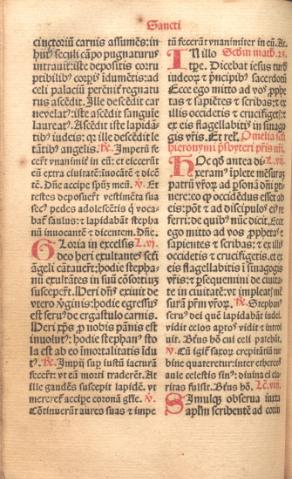 Sancti
cinctoriū carnis assumēs: in
hui⁹ seculi cāpo pugnaturus
intrauit: ille depositis corru
ptibilib⁹ corp̄is idumētis: ad
celi palaciū perēnit̄ regnatu
rus ascēdit. Ille descēdit car
ne velat⁹: iste ascēdit sanguīe
laureat⁹. Ascēdit iste lapidā
tib⁹ iudeis: q̄ ille descēdit le
tātib⁹ angelis. R̄. Impetū fe
cerūt vnanimit̄ in eū: et eiecerūt
eū extra ciuitatē: inuocātē ⁊ dicē
tē. Dn̄e accipe spūm meū. V̄. Et
testes deposuerūt vestimēta sua
sec⁹ pedes adolescētis q̄ voca
bat̄ saulus: et lapidabāt stephā
nū inuocantē ⁊ dicentem. Dn̄e.
Gloria in excelsis L. vi.
deo heri exultantes secū
āgeli cātauerūt: hodie stepha
nū exultātes in suū cōsortiuȝ
susceperūt. Heri dn̄s exiuit de
vtero v̓ginis: hodie egressus
est seru⁹ de ergastulo carnis.
Heri xp̄s ꝓ nobis pānis est
inuolut⁹: hodie stephan⁹ sto
la est ab eo immortalitatis īdu
t⁹. R̄. Impij sup iustū iacturā
fecerūt: vt eū morti traderēt. At
ille gaudēs suscepit lapidē. vt
mereret̄ accipe coronā glīe. V̄.
Cōtinuerūt aures suas ⁊ impe
tū fecerūt vnanimiter in eū. At.
In illo Scd̓m math. 23.
tp̄e. Dicebat iesus turb̓
iudeoꝝ ⁊ p̄ncipib⁹ sacerdotū
Ecce ego mitto ad vos ꝓphe
tas ⁊ sapiētes ⁊ scribas: ⁊ ex
illis occidetis ⁊ crucifiget̄:
et ex eis flagellabit̄ in sinago
gis vr̄is. Et rel̄. Omelia sc̄i
hieronymi p̄sbyteri
Hoc qd̓ antea di L. vii.
xeram⁹ īplete mēsurā
patrū vr̄oꝝ ad p̄sonā dn̄i ptī
nere: eo ꝙ occidēdus esset ab
eis: pōt ⁊ ad discipulos ei⁹ re
ferri: de quib⁹ nūc dicit. Ecce
ego mitto ad vos ꝓphetas ⁊
sapientes ⁊ scribas: ⁊ ex illis
occidetis ⁊ crucifigetis. et ex
eis flagellabitis ī sinagogis
vr̄is: ⁊ ꝑsequemini de ciuita
te in ciuitatē: vt impleat̄ mē
surā p̄rm vr̄oꝝ. R̄. Stephan⁹
seru⁹ dei quē lapidabāt iudei
vidit celos aptos: vidit ⁊ introi
uit. Btūs hō cui celi patebāt.
V̄. Cū igit̄ saxoꝝ crepitātiū tur
bine quateret̄: inter ethereos
aule celestis sin⁹: diuina ei cla
ritas fulsit. Btūs hō. Lc̄. viii.
Simulqȝ obserua iuxta
apl̄m scribentē ad corin